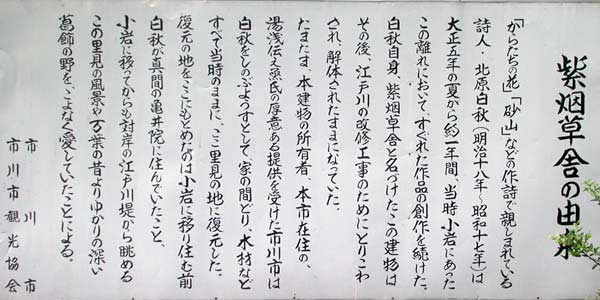 紫烟草舎の由来
「からたちの花」「砂山」などの作詩で親しまれている
詩人・北原白秋(明治十八年~昭和十七年)は
大正五年の夏から約一年間、当時小岩にあった
この離れにおいて、すぐれた作品の創作を続けた。
白秋自身、紫烟草舎と名づけたこの建物は
その後、江戸川の改修工事のためにとりこわ
され、解体されたままになっていた。
たまたま、本建物の所有者、本市在住の、
湯浅伝之烝氏の厚意ある提供を受けた市川市は
白秋をしのぶようすとして、家の間どり、木材など
すべて当時のままに、ここ里見の地に復元した。
復元の地をここにもとめたのは小岩に移り住む前
白秋が真間の亀井院に住んでいたこと、
小岩に移ってからも対岸の江戸川堤から眺める
この里見の風景や万葉の昔よりゆかりの深い
葛飾の野を、こよなく愛していたことによる。
市川市
市川市観光協会